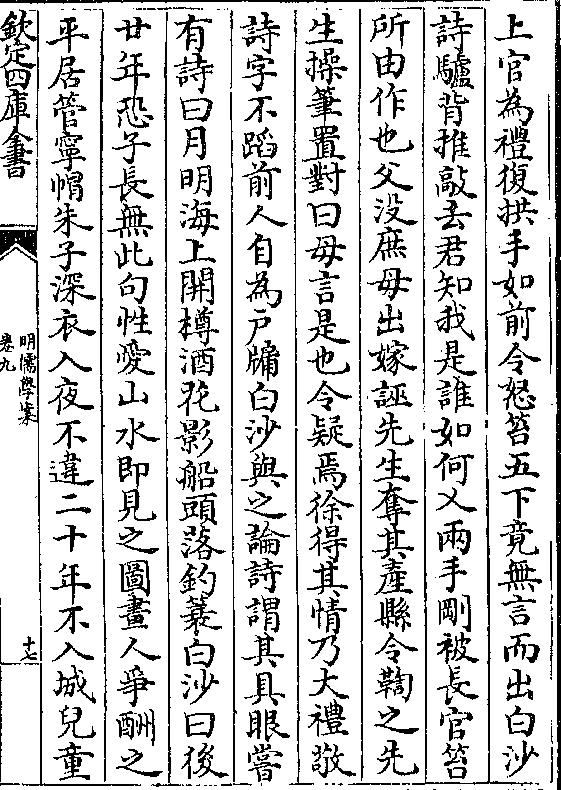 上官為禮復拱手如前令怒笞五下竟無言而出白沙
詩驢背推敲去君知我是誰如何乂兩手剛被長官笞
所由作也父没庶母出嫁誣先生奪其產縣令鞫之先
生操筆置對曰母言是也令疑焉徐得其情乃大禮敬
詩字不蹈前人自為户牖白沙與之論詩謂其具眼嘗
有詩曰月明海上開樽酒花影船頭落釣蓑白沙曰後
廿年恐子長無此句性愛山水即見之圖畫人爭酬之
平居管寧帽朱子深衣入夜不違二十年不入城兒童
欽定四庫全書
明儒學案
卷九
十七